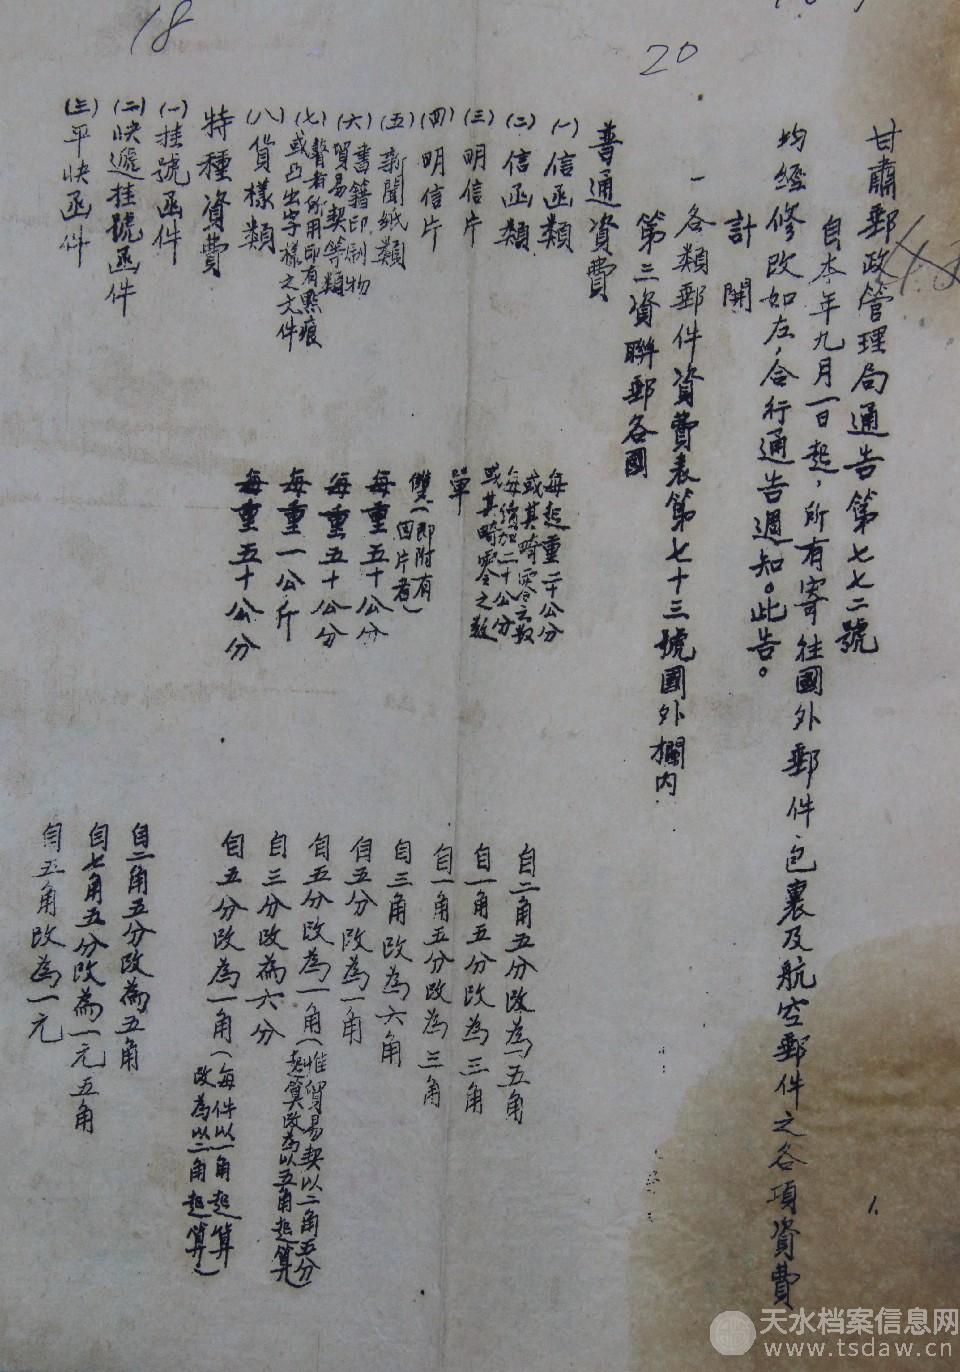 18
20
甘肅郵政管理局通告第七七二號
自本年九月一日起，所有寄往國外郵件包裹及航空郵件之各項資費
均經修改如左，合行通告週知。此告。
計開
一各類郵件資費表第七十三號國外欄内
第三資聯郵各國
普通資費
(一)信函類 每起重二十公分或其畸零之數 自二角五分改為五角
(二)信函類 每續加二十公分或其畸零之數 自一角五分改為三角
(三)明信片 單 自一角五分改為三角
(四)明信片 雙(即附有回片者) 自三角改為六角
(五)新聞紙類 每重五十公分 自五分改為一角
(六)書籍印刷物貿易契等類 每重五十公分 自五分改為一角(惟貿易契以二角五分起算改為以五角起算)
(七)瞽者所用印有點痕或凸出字樣之文件 每重一公斤 自三分改為六分
(八)貨樣類 每重五十公分 自五分改為一角(每件以一角起算改為以二角起算)
特種資費
(一)挂號函件 自二角五分改為五角
(二)快遞挂號函件 自七角五分改為一元五角
(三)平快函件 自五角改為一元
1.
天水档案信息网
www.tsdaw.cn